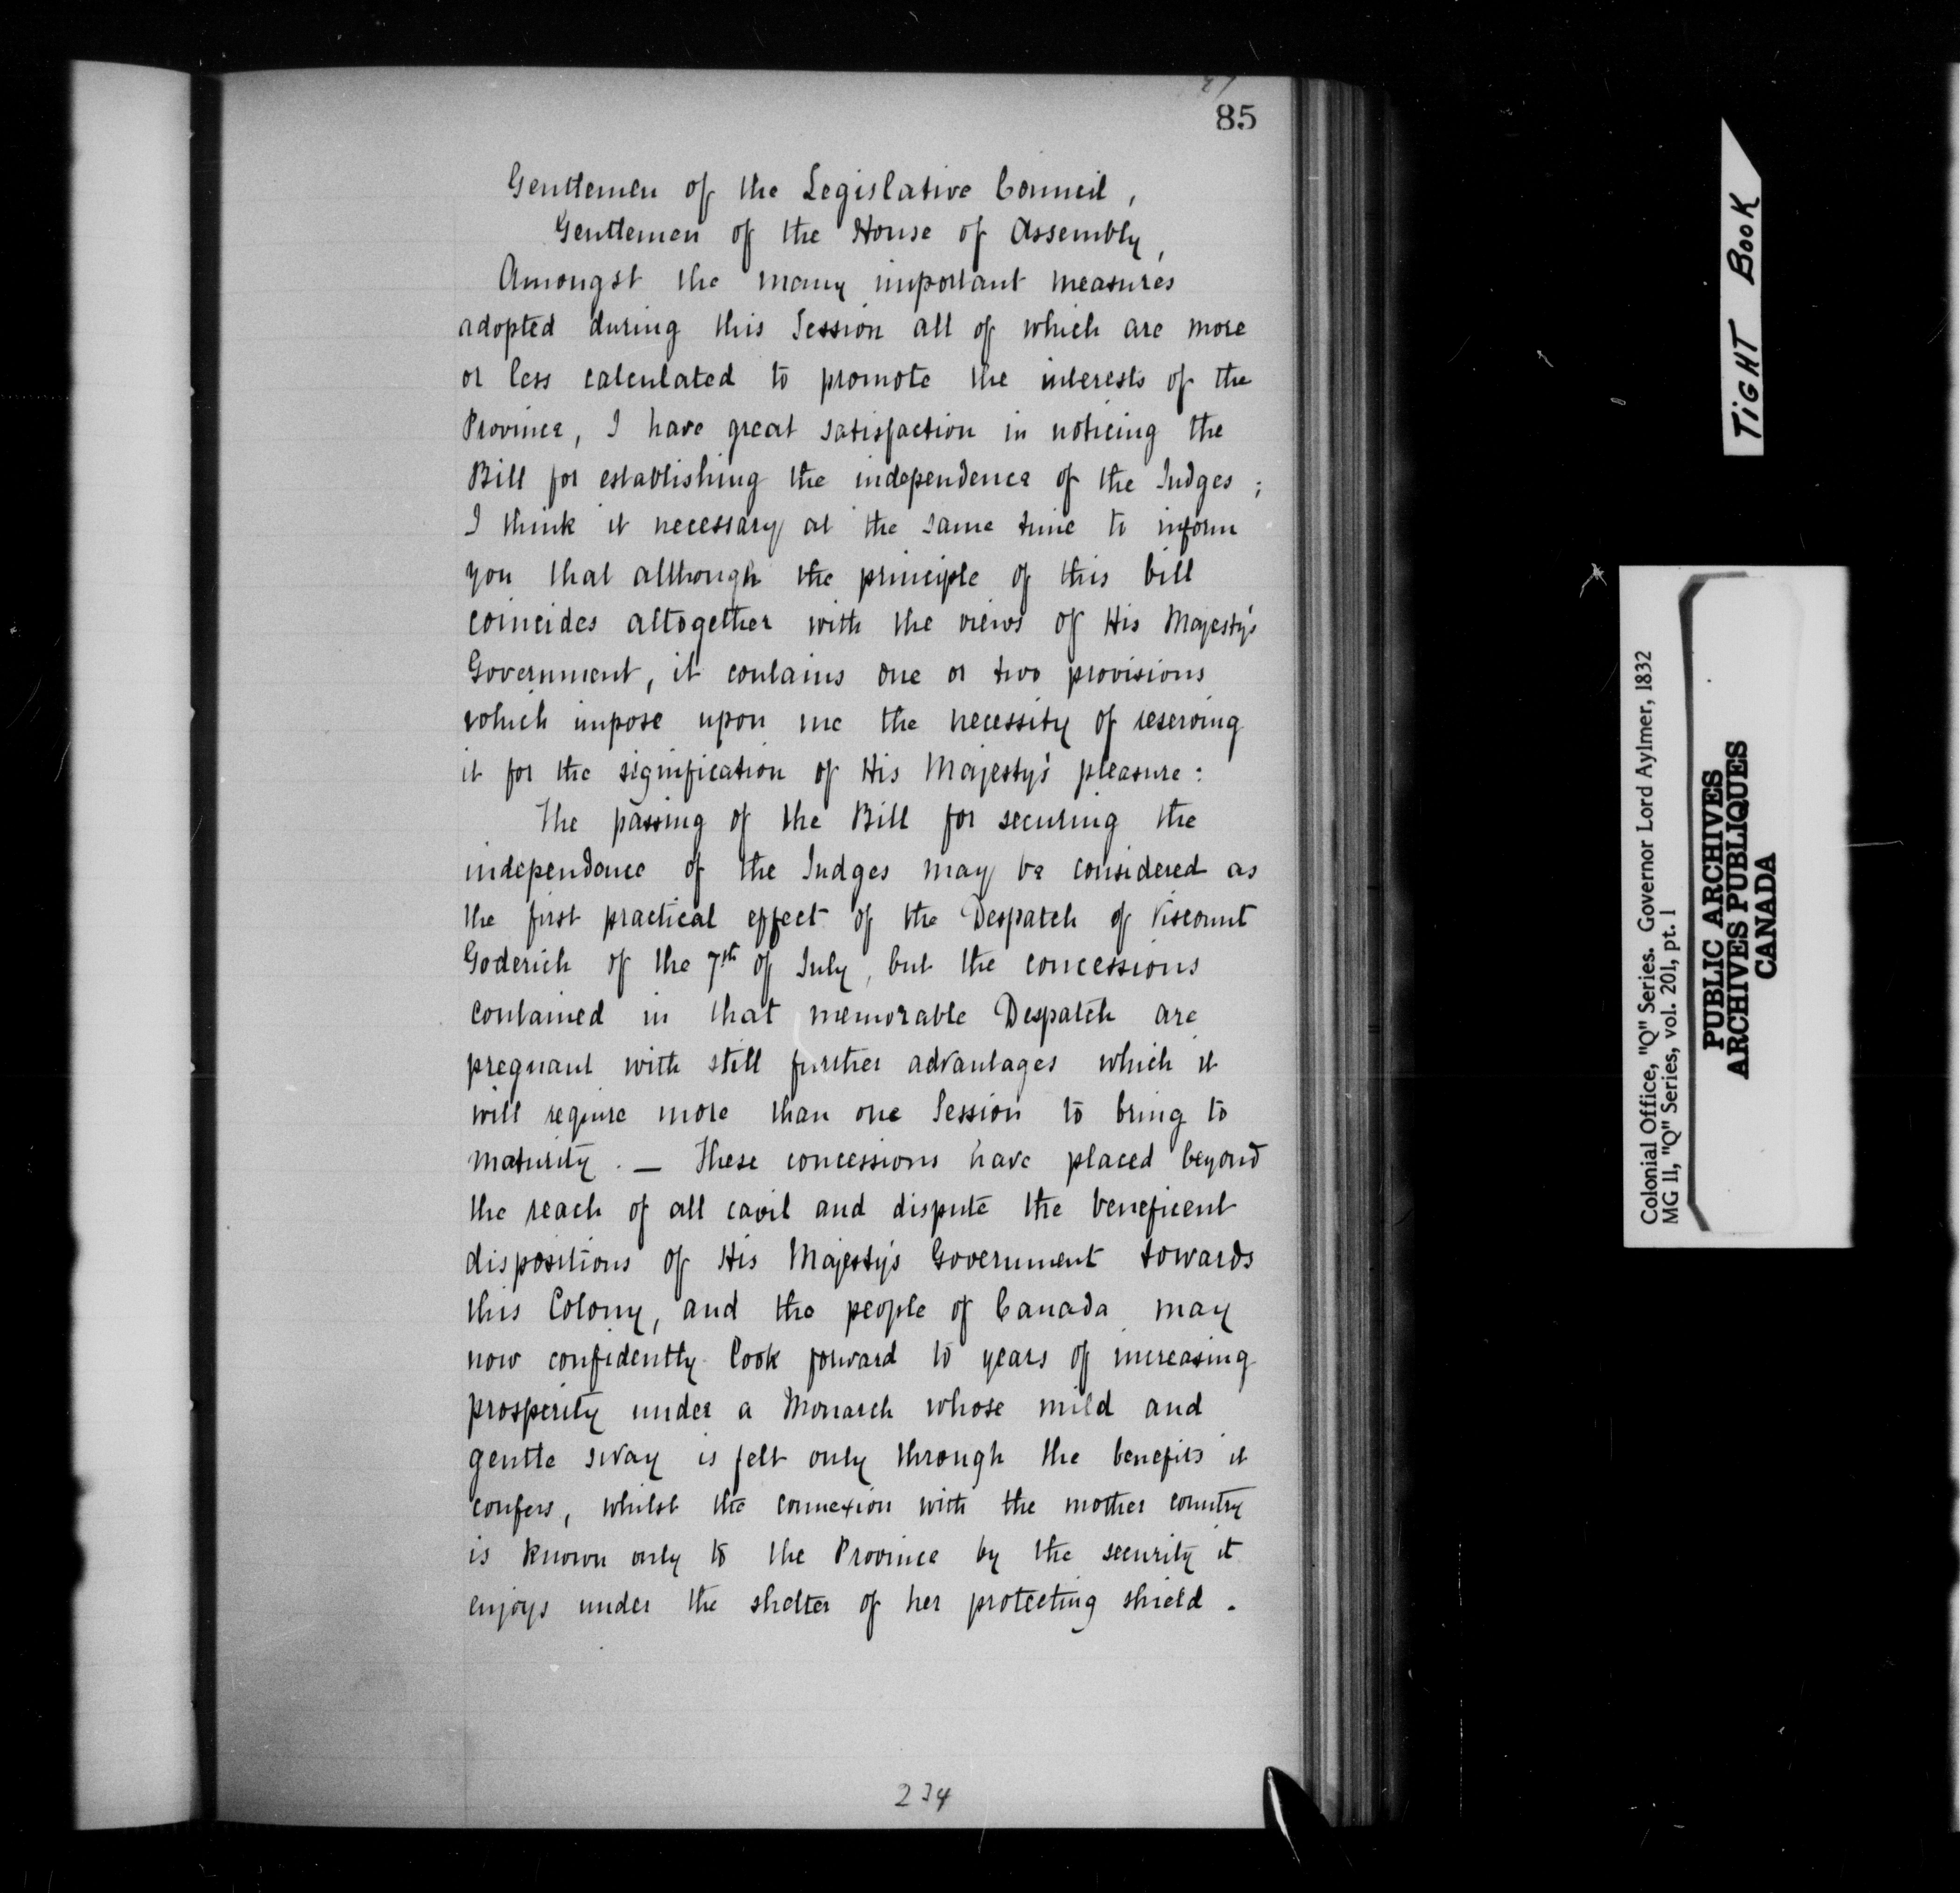 85
Gentlemen of the Legislative Council,
Gentlemen of the House of Assembly,
Amongst the many important measures
adopted during this Session all of which are more
or less calculated to promote the interests of the
Province, I have great satisfaction in noticing the
Bill for establishing the independence of the Judges ;
I think it necessary at the same time to inform
you that although the principle of this bill
coincides altogether with the views of His Majesty's
Government, it contains one or two provisions
which impose upon me the necessity of reserving
it for the signification of His Majesty's pleasure :
The passing of the Bill for securing the
independence of the Judges may be considered as
the first practical effect of the Despatch of Viscount
Goderich of the 7th of July, but the concessions
contained in that memorable Despatch are
pregnant with still further advantages which it
will require more than one Session to bring to
maturity . — These concessions have placed beyond
the reach of all cavil and dispute the beneficent
dispositions of His Majesty's Government towards
this Colony, and the people of Canada may
now confidently look forward to years of increasing
prosperity under a Monarch whose mild and
gentle sway is felt only through the benefits it
confers, whilst the connexion with the mother country
is known only to the Province by the security it
enjoys under the shelter of her protecting shield .
234
TIGHT BOOK
Colonial Office, "Q" Series. Governor Lord Aylmer, 1832
MG 11, "Q" Series, vol. 201, pt. 1
PUBLIC ARCHIVES
ARCHIVES PUBLIQUES
CANADA